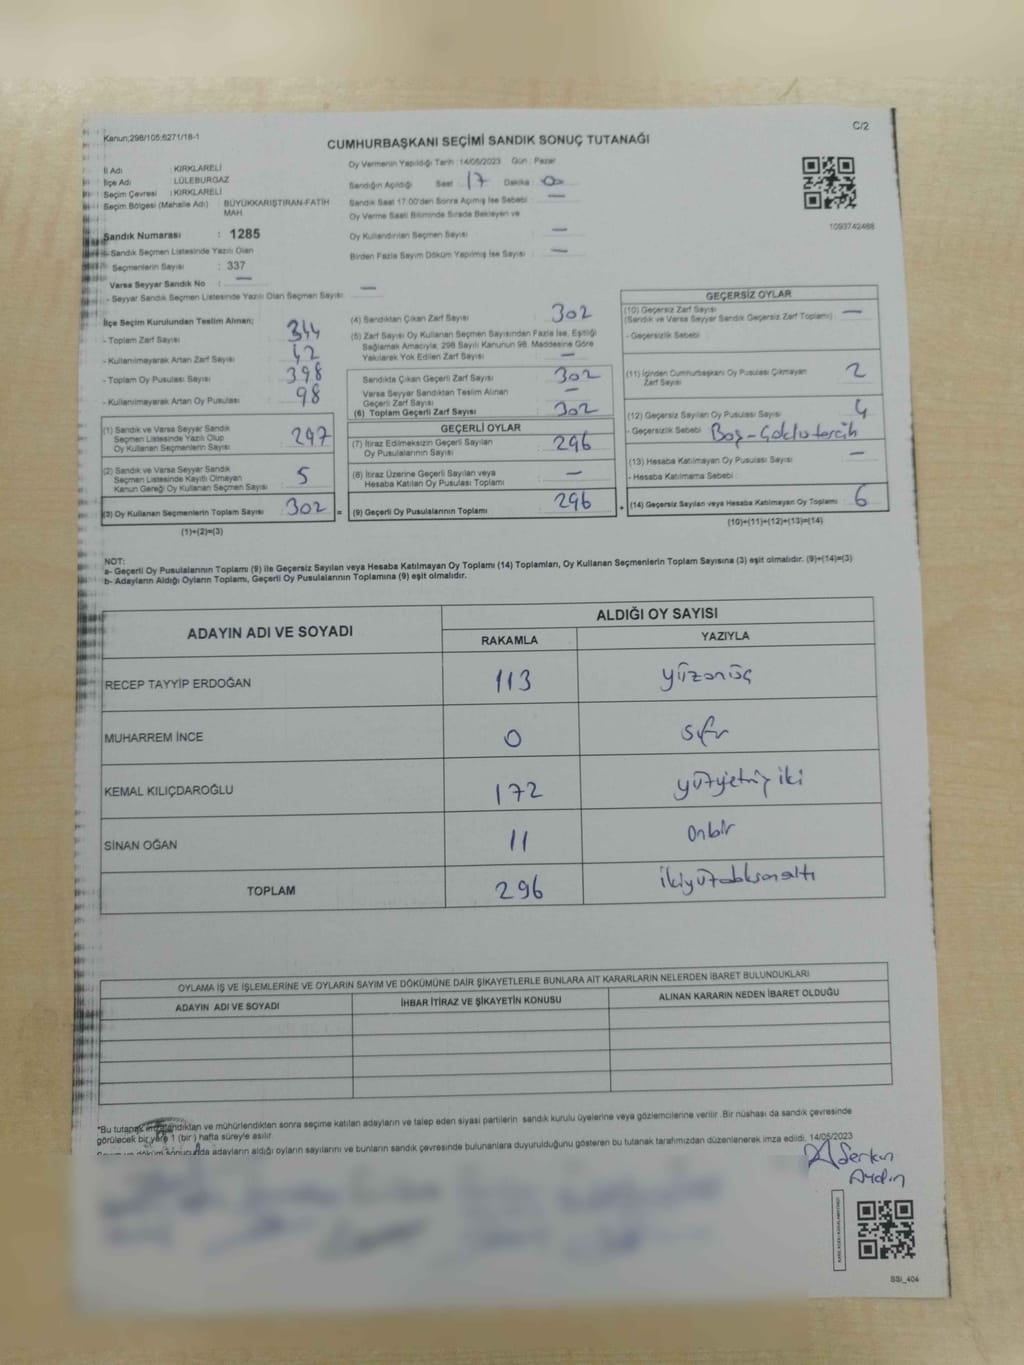 Kanun:298/105;6271/18-1
C/2
CUMHURBAŞKANI SEÇİMİ SANDIK SONUÇ TUTANAĞI
İl Adı : KIRKLARELİ
İlçe Adı : LÜLEBURGAZ
Seçim Çevresi : KIRKLARELİ
Seçim Bölgesi (Mahalle Adı) : BÜYÜKKARIŞTIRAN-FATİH
MAH.
Sandık Numarası : 1285
- Sandık Seçmen Listesinde Yazılı Olan
Seçmenlerin Sayısı : 337
Varsa Seyyar Sandık No : —
- Seyyar Sandık Seçmen Listesinde Yazılı Olan Seçmen Sayısı: —
Oy Vermenin Yapıldığı Tarih : 14/05/2023 Gün : Pazar
Sandığın Açıldığı Saat 17 Dakika 0
Sandık Saat 17.00'den Sonra Açımış İse Sebebi : —
Oy Verme Saati Bitiminde Sırada Bekleyen ve
Oy Kullandırılan Seçmen Sayısı : —
Birden Fazla Sayım Döküm Yapılmış İse Sayısı : —
1093742488
İlçe Seçim Kurulundan Teslim Alınan;
- Toplam Zarf Sayısı 344
- Kullanılmayarak Artan Zarf Sayısı 42
- Toplam Oy Pusulası Sayısı 398
- Kullanılmayarak Artan Oy Pusulası 98
(1) Sandık ve Varsa Seyyar Sandık
Seçmen Listesinde Yazılı Olup
Oy Kullanan Seçmenlerin Sayısı 297
(2) Sandık ve Varsa Seyyar Sandık
Seçmen Listesinde Kayıtlı Olmayan
Kanun Gereği Oy Kullanan Seçmen Sayısı 5
(3) Oy Kullanan Seçmenlerin Toplam Sayısı 302 =
(1)+(2)=(3)
(4) Sandıktan Çıkan Zarf Sayısı 302
(5) Zarf Sayısı Oy Kullanan Seçmen Sayısından Fazla İse, Eşitliği
Sağlamak Amacıyla, 298 Sayılı Kanunun 98. Maddesine Göre
Yakılarak Yok Edilen Zarf Sayısı —
Sandıkta Çıkan Geçerli Zarf Sayısı 302
Varsa Seyyar Sandıktan Teslim Alınan
Geçerli Zarf Sayısı —
(6) Toplam Geçerli Zarf Sayısı 302
GEÇERLİ OYLAR
(7) İtiraz Edilmeksizin Geçerli Sayılan
Oy Pusulalarının Sayısı 296
(8) İtiraz Üzerine Geçerli Sayılan veya
Hesaba Katılan Oy Pusulası Toplamı —
(9) Geçerli Oy Pusulalarının Toplamı 296 +
GEÇERSİZ OYLAR
(10) Geçersiz Zarf Sayısı —
(Sandık ve Varsa Seyyar Sandık Geçersiz Zarf Toplamı)
- Geçersizlik Sebebi :
(11) İçinden Cumhurbaşkanı Oy Pusulası Çıkmayan
Zarf Sayısı 2
(12) Geçersiz Sayılan Oy Pusulası Sayısı 4
- Geçersizlik Sebebi Boş-Çoklu tercih
(13) Hesaba Katılmayan Oy Pusulası Sayısı —
- Hesaba Katılmama Sebebi :
(14) Geçersiz Sayılan veya Hesaba Katılmayan Oy Toplamı 6
(10)+(11)+(12)+(13)=(14)
NOT:
a- Geçerli Oy Pusulalarının Toplamı (9) ile Geçersiz Sayılan veya Hesaba Katılmayan Oy Toplamı (14) Toplamları, Oy Kullanan Seçmenlerin Toplam Sayısına (3) eşit olmalıdır. (9)+(14)=(3)
b- Adayların Aldığı Oyların Toplamı, Geçerli Oy Pusulalarının Toplamına (9) eşit olmalıdır.
ADAYIN ADI VE SOYADI
ALDIĞI OY SAYISI
RAKAMLA YAZIYLA
RECEP TAYYİP ERDOĞAN 113 yüzonüç
MUHARREM İNCE 0 sıfır
KEMAL KILIÇDAROĞLU 172 yüzyetmiş iki
SİNAN OĞAN 11 onbir
TOPLAM 296 ikiyüzdoksanaltı
OYLAMA İŞ VE İŞLEMLERİNE VE OYLARIN SAYIM VE DÖKÜMÜNE DAİR ŞİKAYETLERLE BUNLARA AİT KARARLARIN NELERDEN İBARET BULUNDUKLARI
ADAYIN ADI VE SOYADI İHBAR İTİRAZ VE ŞİKAYETİN KONUSU ALINAN KARARIN NEDEN İBARET OLDUĞU
*Bu tutanak imzalandıktan ve mühürlendikten sonra seçime katılan adayların ve talep eden siyasi partilerin sandık kurulu üyelerine veya gözlemcilerine verilir .Bir nüshası da sandık çevresinde
görülecek bir yere 1 (bir) hafta süreyle asılır.
adayların aldığı oyların sayılarını ve bunların sandık çevresinde bulunanlara duyurulduğunu gösteren bu tutanak tarafımızdan düzenlenerek imza edildi. 14/05/2023
Serkan
Aydın
SSI_404